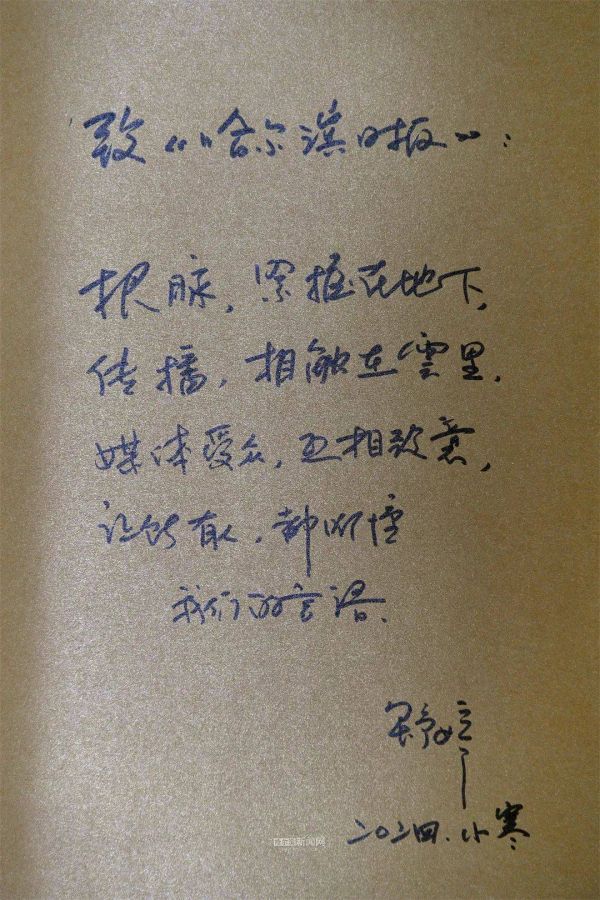 致《哈尔滨日报》：
根脉，紧握在地下，
传播，相触在雲里，
媒体受众，互相致意，
让所有人，都听懂
我们的言语.
舒婷
二〇二四.小寒
新闻网